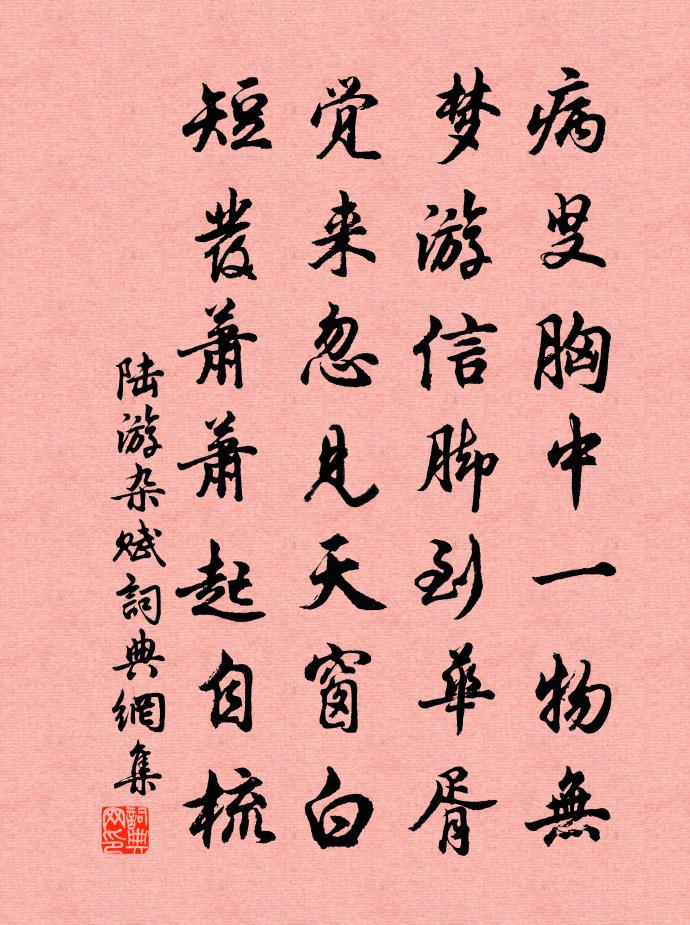 病叟胸中一物無
梦游信脚到華胥
觉来忽見天窗白
短發蕭蕭起自梳
陆游杂赋詞典網集
詞典
网印